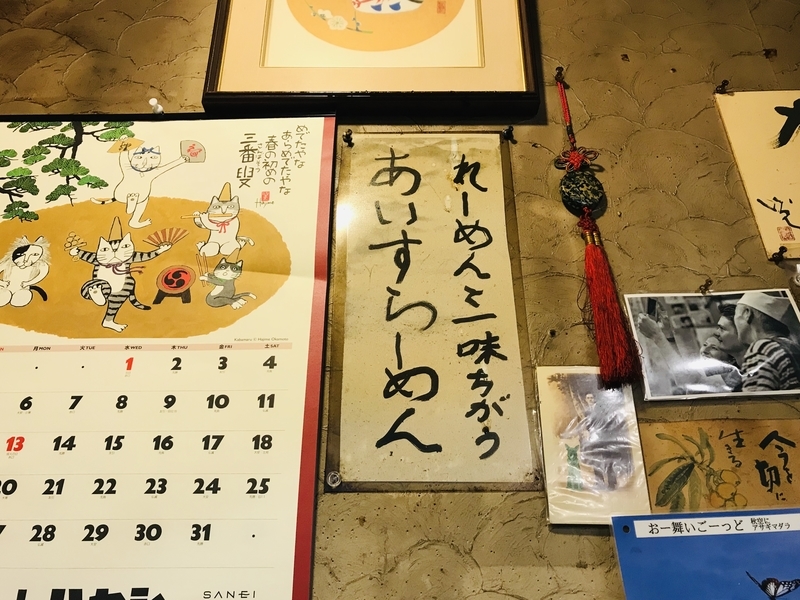 めでたやな
あらめでたやな
春の初めの
三番叟
Hajime
月MON 火TUE 水WED 木THU 金FRI 土SAT
1 2 3 4
6 7 8 9 10 11
13 14 15 16 17 18
20 21 22 23 24 25
27 28 29 30 31
SANEI
れーめんと一味ちがう
あいすらーめん
今を
切に
生きる
おー舞いごーっど
秋空に
アサギマダラ